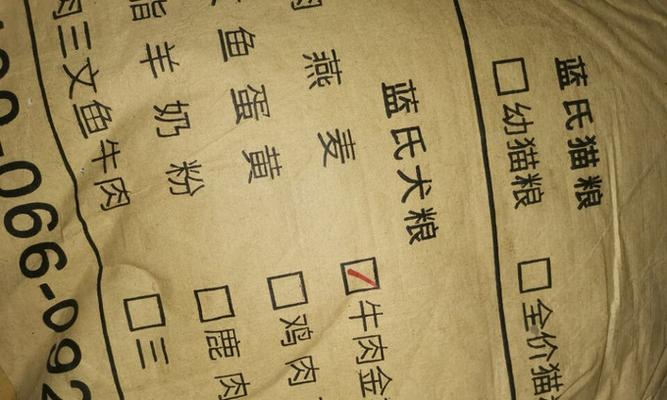 蓝氏猫粮
□幼猫粮 □全价猫
蓝氏犬粮
燕麦 ☑牛肉金
鱼蛋黄 □鸡肉
羊奶粉 □鹿肉
肉三文鱼牛肉 □三
0-066-092